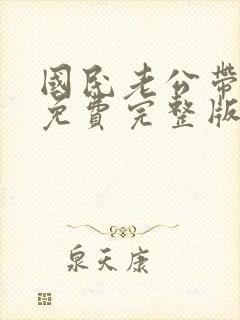 國民老公帶
免費完整版
泉天康